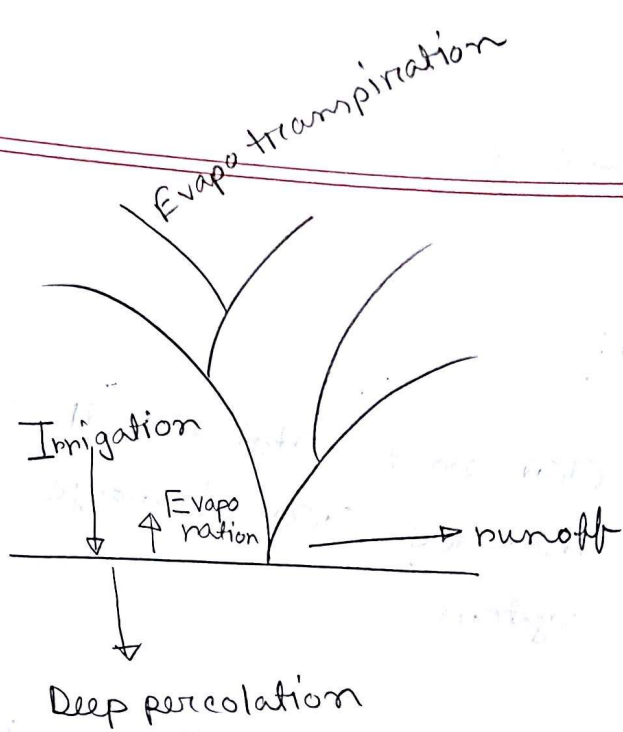 Evapo transpiration
Irrigation
Evapo
ration
runoff
Deep percolation